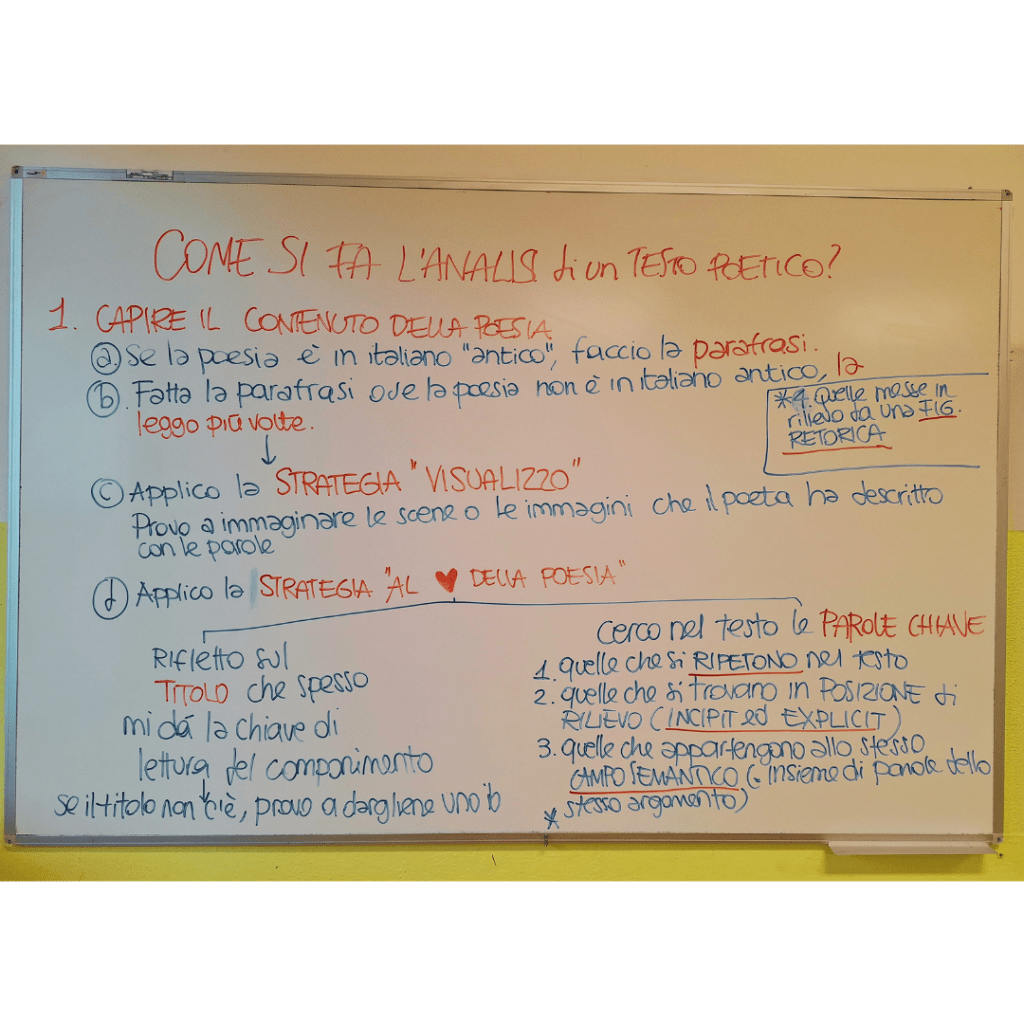 COME SI FA L'ANALIS di un TESTO POETICO?
1. CAPIRE IL CONTENUTO DELLA POESIA
a) Se la poesia è in italiano "antico", faccio la parafrasi.
b) Fatta la parafrasi o se la poesia non è in italiano antico, la
leggo più volte.
*4. Quelle messe in
rilievo da una FIG.
RETORICA
↓
c) Applico la STRATEGIA "VISUALIZZO"
Provo a immaginare le scene o le immagini che il poeta ha descritto
con le parole
d) Applico la STRATEGIA "AL ♥ DELLA POESIA"
Rifletto sul
TITOLO che spesso
mi dá la chiave di
lettura del componimento
↓
se il titolo non c'è, provo a dargliene uno io
Cerco nel testo le PAROLE CHIAVE
1. quelle che si RIPETONO nel testo
2. quelle che si trovano in POSIZIONE di
RILIEVO (INCIPIT ed EXPLICIT)
3. quelle che appartengono allo stesso
CAMPO SEMANTICO (= insieme di parole dello
* stesso argomento)